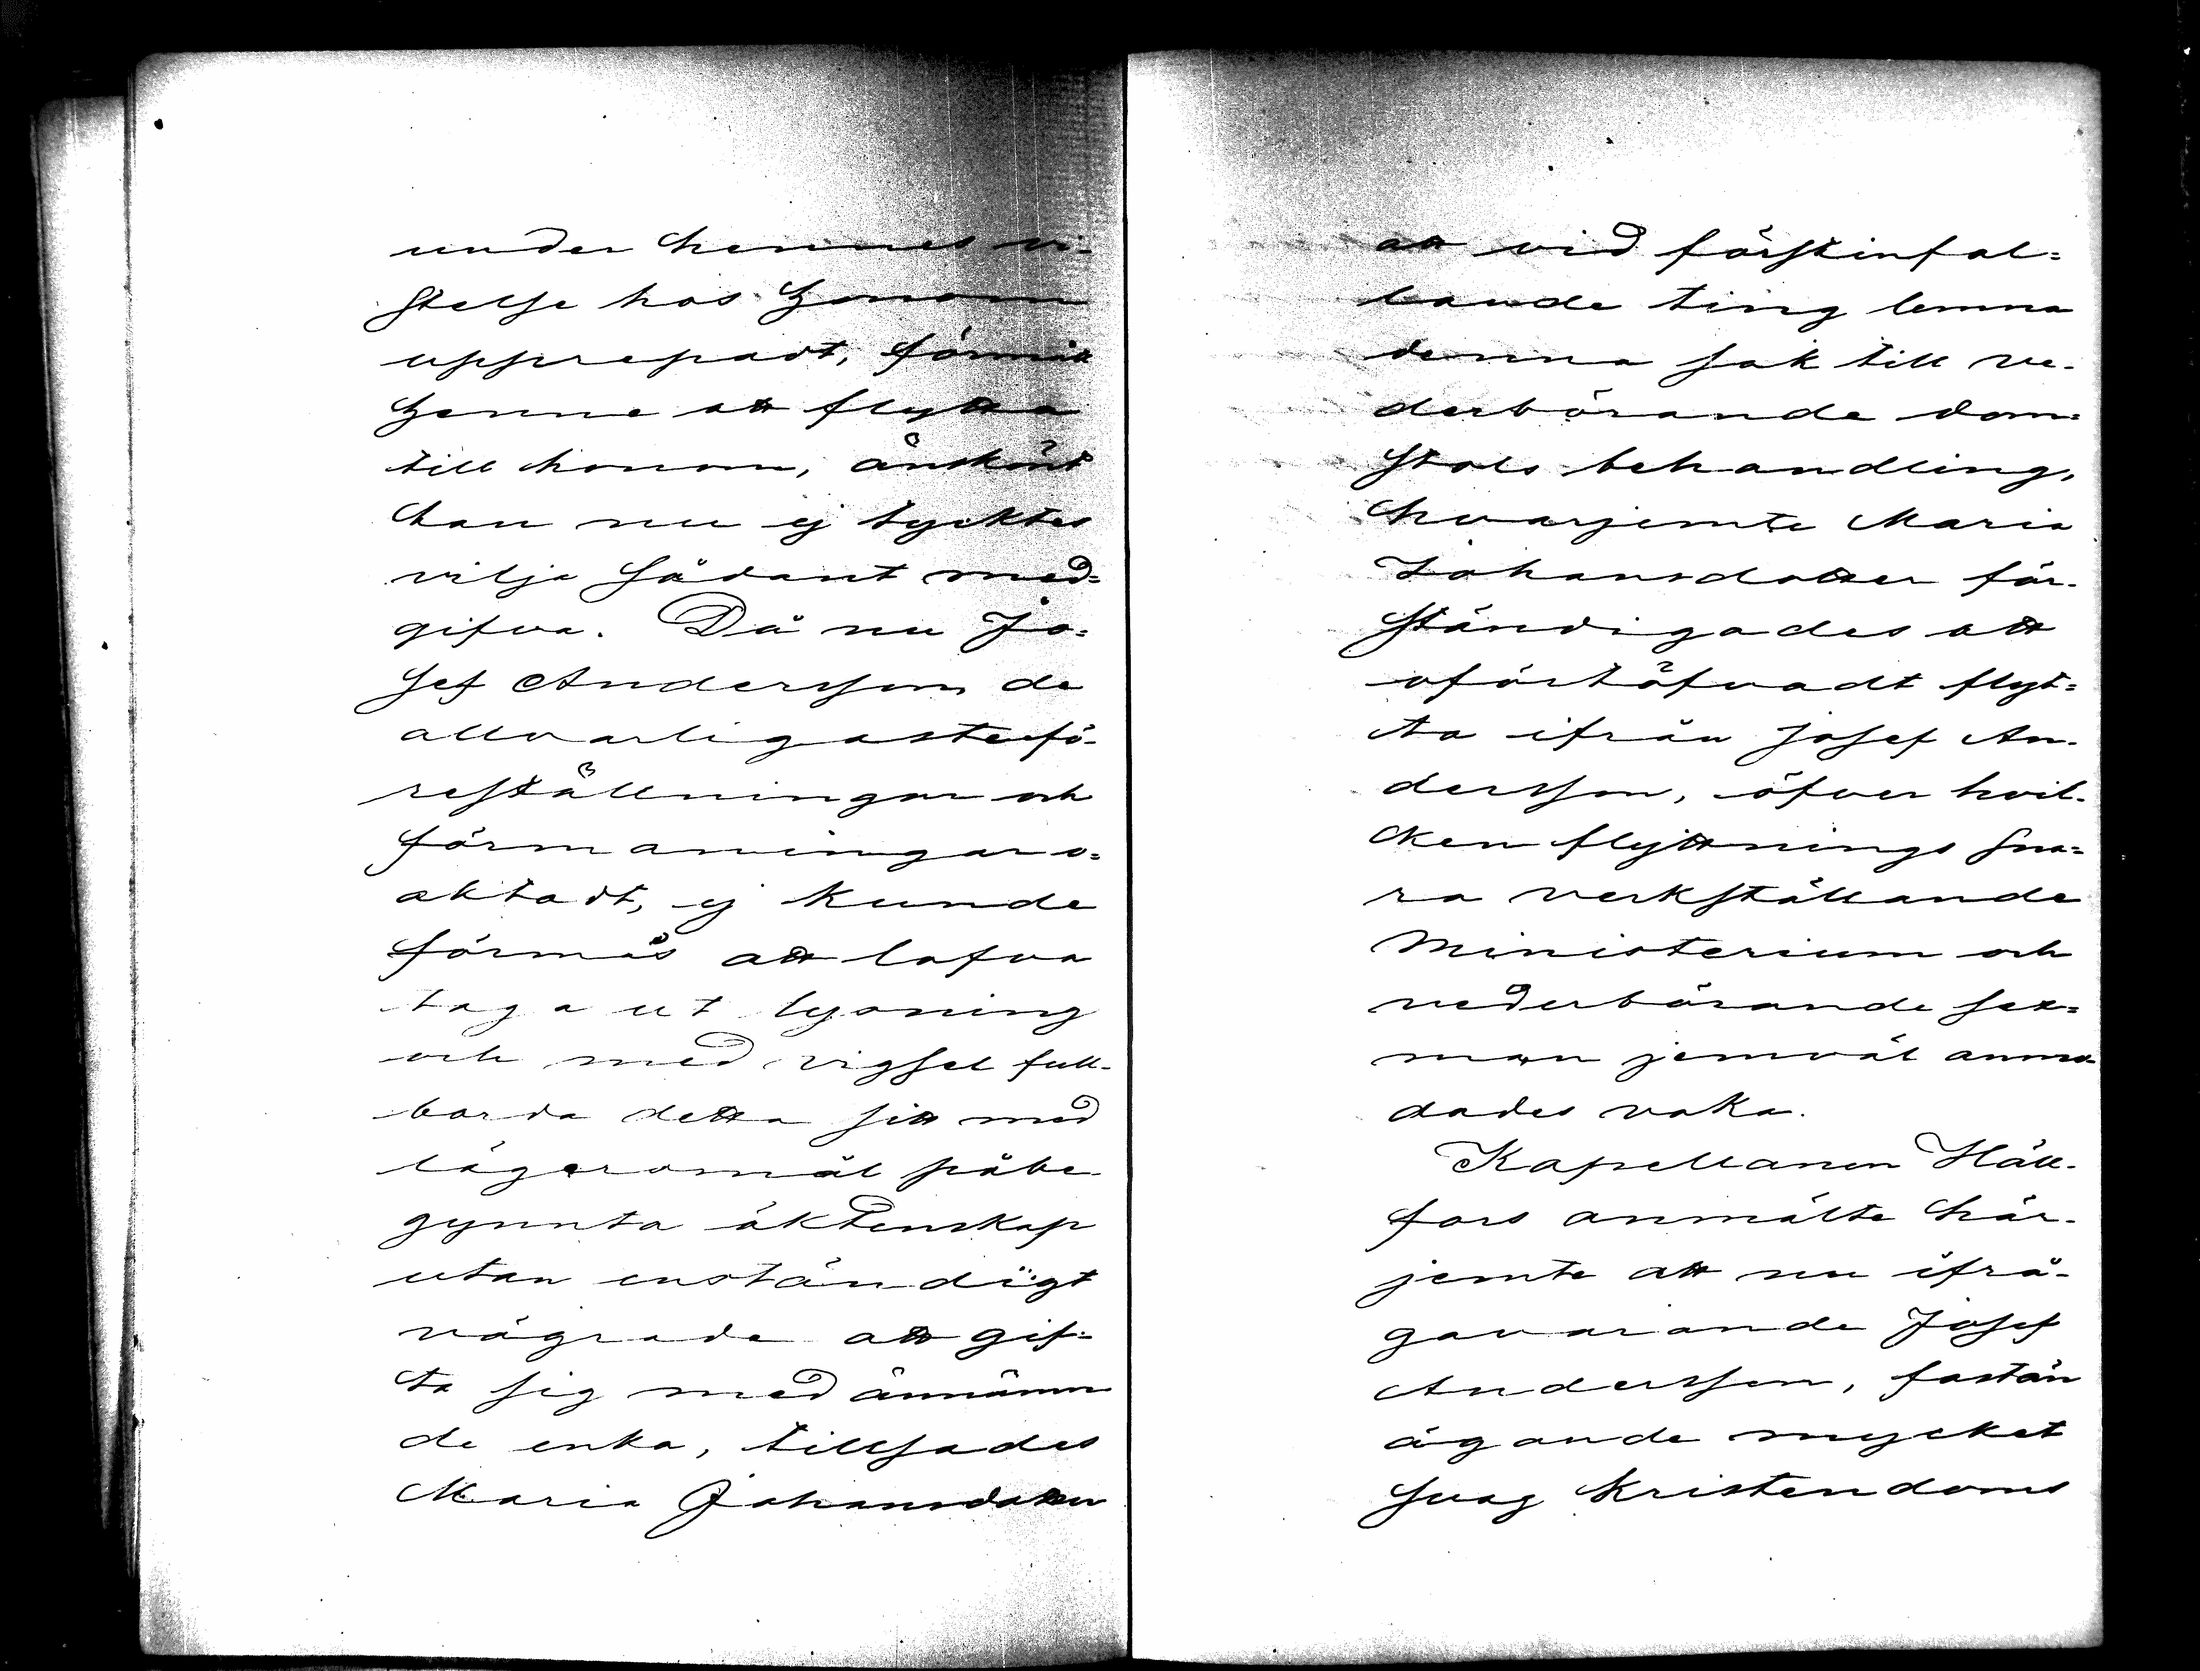 under hennes vi-
stelse hos honom
upprepadt, förmått
henne att flytta
till honom, änskönt
han nu ej tycktes
vilja sådant med=
gifva. Då nu Jo=
sef Andersson de
allvarligaste fö-
reställningar och
förmaningar o=
aktadt, ej kunde
förmås att lofva
taga ut lysning
och med vigsel full-
borda detta sitt med
lägersmål påbe
gynnta äktenskap
utan enständigt
vägrade att gif=
ta sig med ännämn
de enka, tillsades
Maria Johansdotter
att vid förstinfal=
lande ting lemna
denna sak till ve-
derbörande dom=
stols behandling,
hvarjemte Maria
Johansdotter för-
ständigades att
ofördröfvadt flyt=
ta ifrån Josef An-
dersson, öfver hvil-
ken flyttnings sna=
ra verkställande
Ministerium och
vederbörande sex=
man jemväl anmo-
dades vaka.
Kapellanen Häll-
fors anmälte här-
jemte att nu ifrå-
gavarande Josef
Andersson, fastän
ägande mycket
svag kristendoms